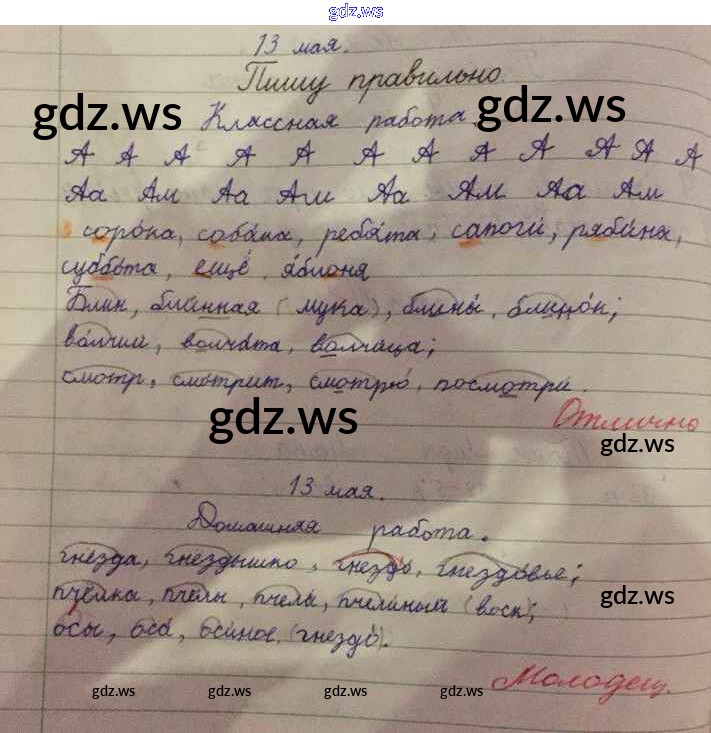 gdz.ws
13 мая.
Пишу правильно
gdz.ws gdz.ws
Классная работа.
А А А А А А А А А А А А
Аа Ам Аа Ам Аа Ам Аа Ам
соро́ка, соба́ка, ребя́та, сапоги́, ряби́на,
суббо́та, ещё, я́блоня
Блин, бли́нная (мука), блины́, блино́к;
во́лчий, волча́та, волчи́ца;
смотр, смо́трит, смотрю́, посмотри́.
gdz.ws
Отлично
gdz.ws
13 мая.
Домашняя работа.
гнёзда, гнёздышко, гнездо́, гнездо́вье;
пчёлка, пчёлы, пчела́, пчели́ный (воск);
gdz.ws
о́сы, оса́, оси́ное, (гнездо́).
Молодец.
gdz.ws gdz.ws gdz.ws gdz.ws